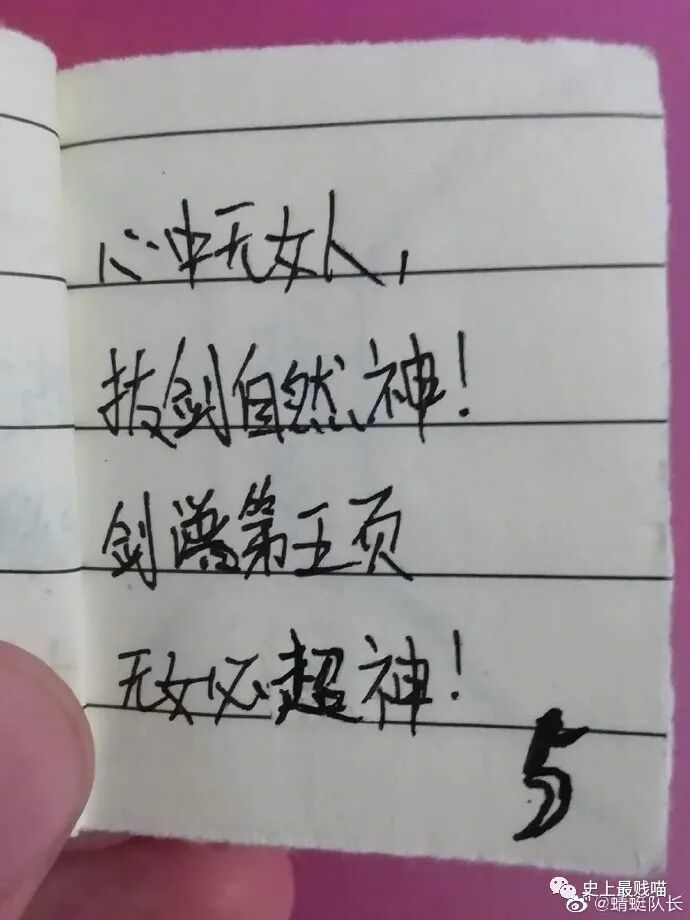 心中无女人,
拔剑自然神!
剑谱第五页
无女必超神!
5
史上最贱喵
@蜻蜓队长